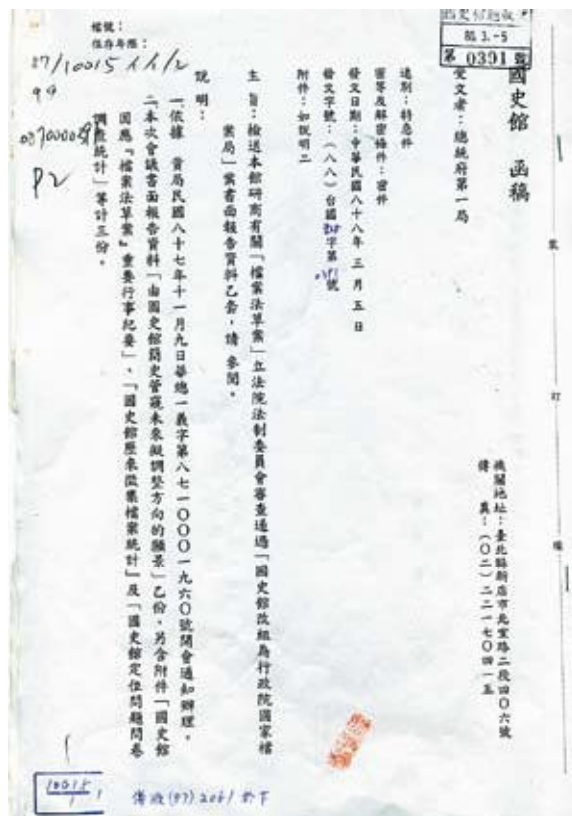 檔號：
保存年限：
87/10015 1/1/2
99
P2
88. 3. -5
第 0391 號
國史館 函稿
受文者：總統府第一局
機關地址：臺北縣新店市北宜路二段四〇六號
傳 真：（〇二）二二一七〇四一五
速別：特急件
密等及解密條件：密件
發文日期：中華民國八十八年 三 月 五 日
發文字號：（八八）台國 字第0391號
附件：如說明二
主 旨：檢送本館研商有關「檔案法草案」立法院法制委員會審查通過「國史館改組為行政院國家檔
案局」案書面報告資料乙套，請 參閱。
說 明：
一、依據 貴局民國八十七年十一月九日華總一義字第八七一〇〇〇一九六〇號開會通知辦理。
二、本次會議書面報告資料「由國史館簡史管窺未來擬調整方向的願景」乙份，另含附件「國史館
因應『檔案法草案』重要行事紀要」、「國史館歷來徵集檔案統計」及「國史館定位問題問卷
調查統計」等計三份。
裝
訂
線
10015
1